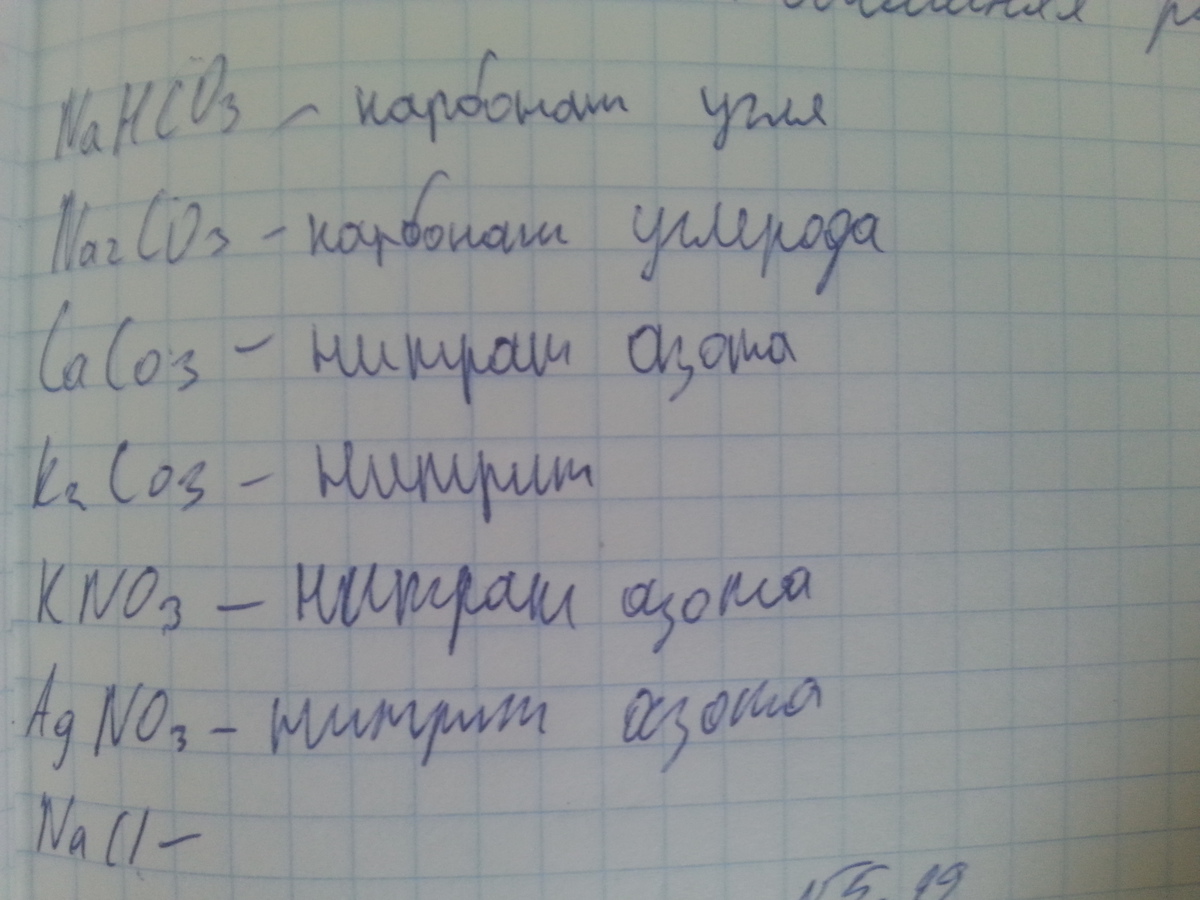 домашняя
NaHCO3 – карбонат угля
Na2CO3 – карбонат углерода
CaCO3 – нитрат азота
K2CO3 – нитрит
KNO3 – нитрат азота
AgNO3 – нитрит азота
NaCl –
№5.19